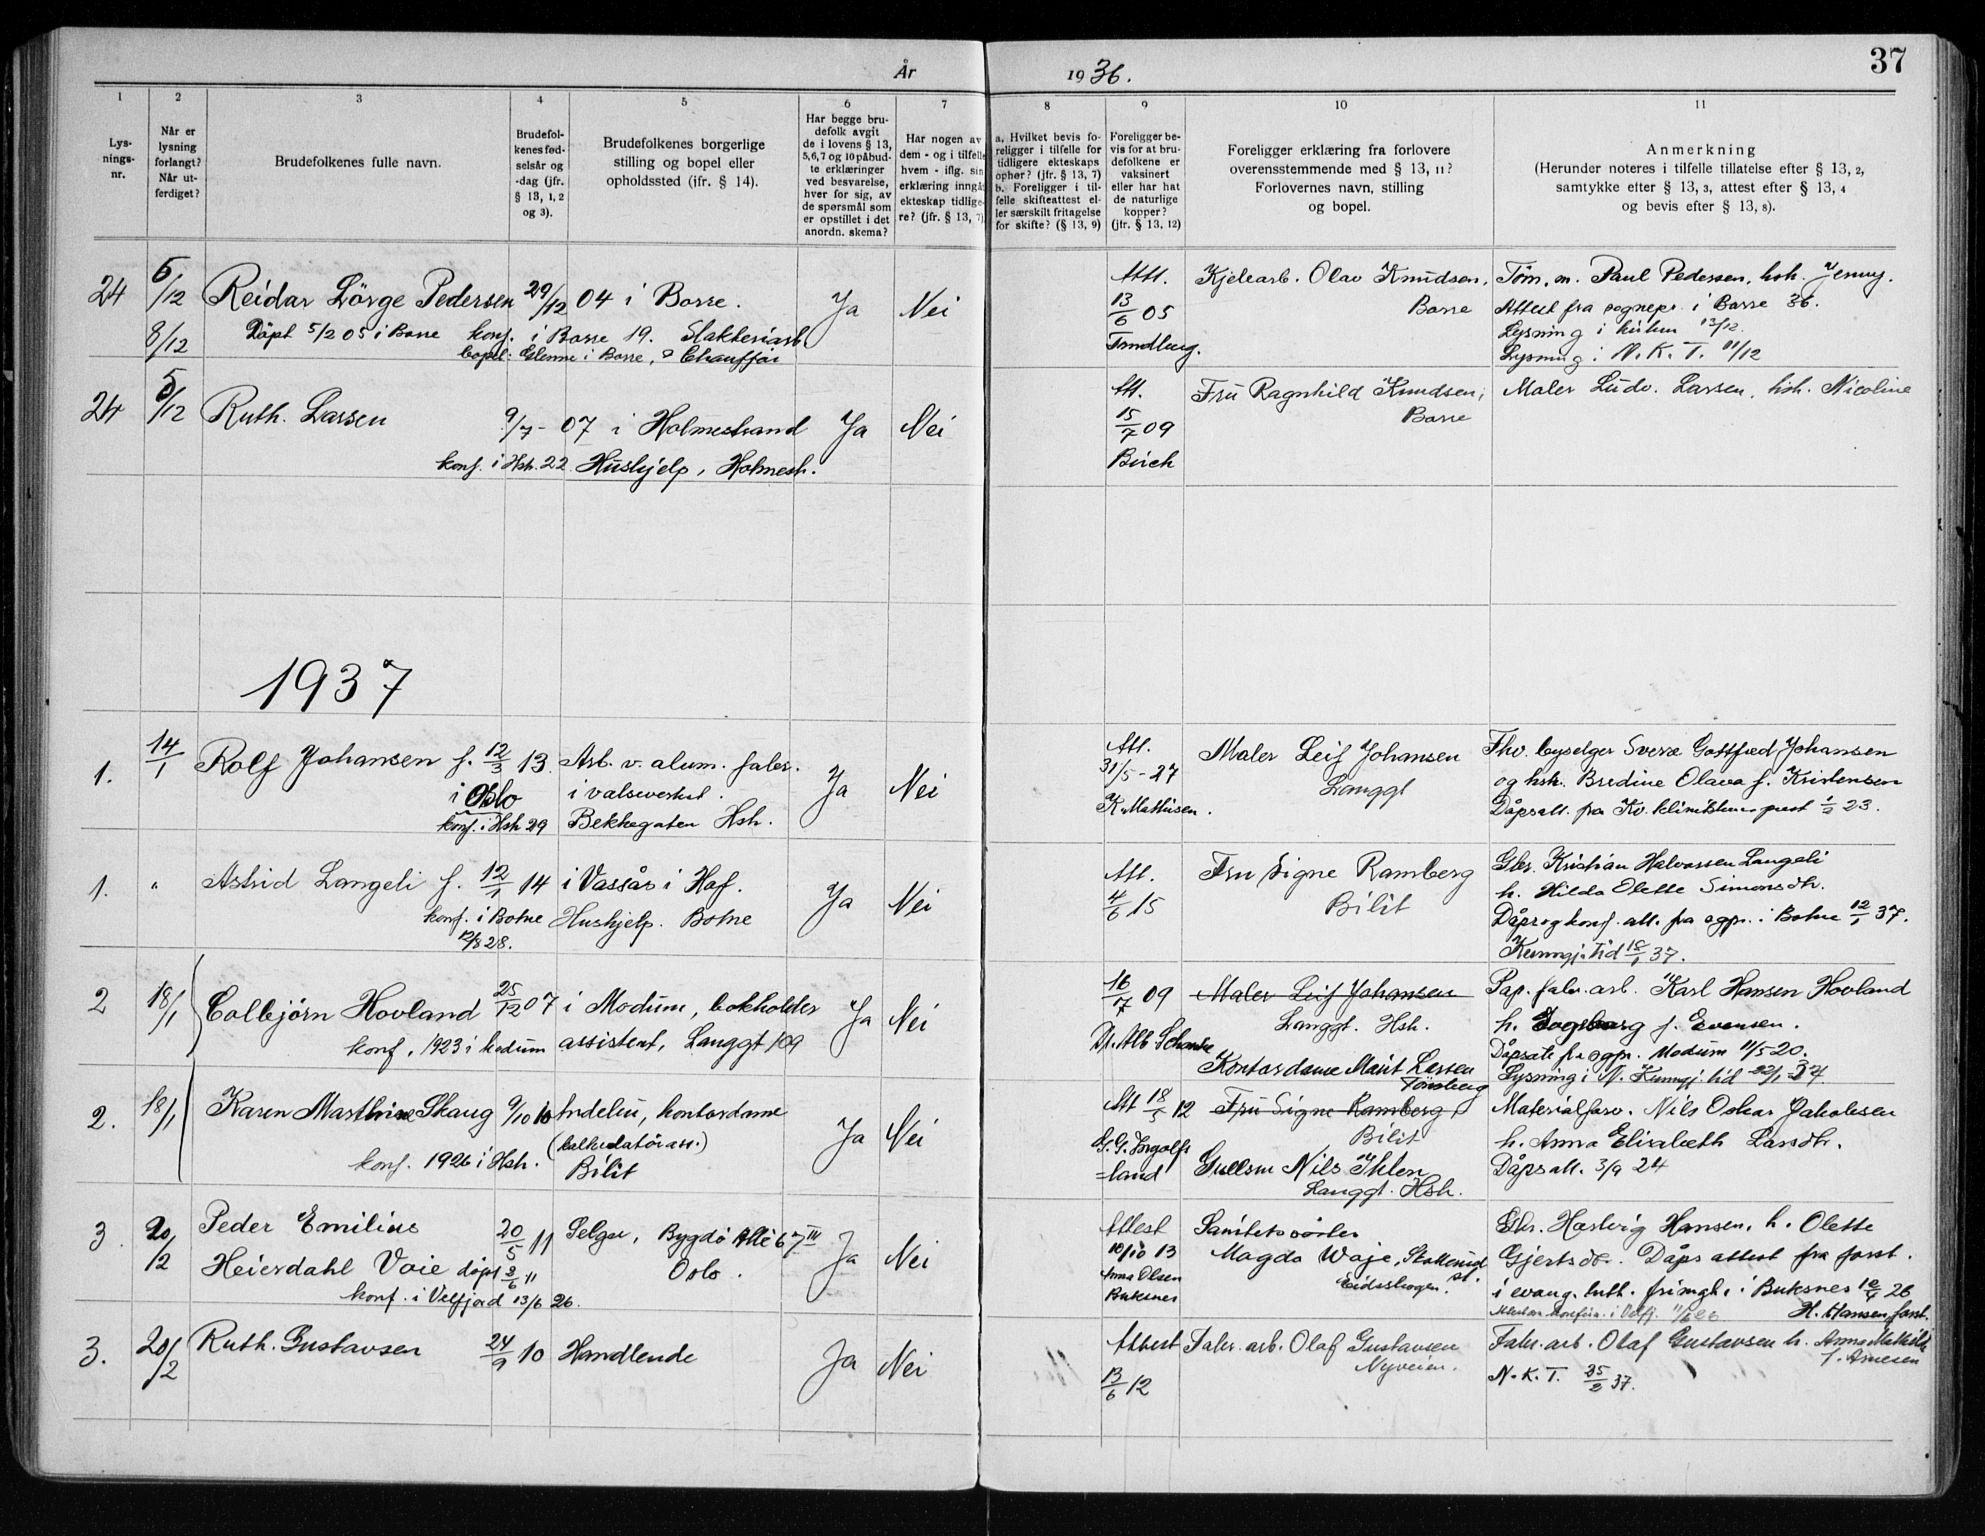 År 1936.
37
1
2
3
4
5
6
7
8
9
10
11
Lys-
nings-
nr.
Når er
lysning
forlangt?
Når ut-
ferdiget?
Brudefolkenes fulle navn.
Brudefol-
kenes fød-
selsår og
-dag (jfr.
§ 13, 1, 2
og 3).
Brudefolkenes borgerlige
stilling og bopel eller
opholdssted (ifr. § 14).
Har begge bru-
defolk avgit
de i lovens § 13,
5,6,7 og 10 påbud-
te erklæringer
ved besvarelse,
hver for sig, av
de spørsmål som
er opstillet i det
anordn. skema?
Har nogen av
dem - og i tilfelle
hvem - iflg. sin
erklæring inngå
ekteskap tidlige-
re? (jfr. § 13, 7)
a. Hvilket bevis fo-
religger i tilfelle for
tidligere ekteskaps
ophør? (jfr. § 13, 7)
b. Foreligger i til-
felle skifteattest el-
ler særskilt fritagelse
for skifte? (§ 13, 9)
Foreligger be-
vis for at bru-
defolkene er
vaksinert
eller har hat
de naturlige
kopper?
(jfr. § 13, 12)
Foreligger erklæring fra forlovere
overensstemmende med § 13, 11?
Forlovernes navn, stilling
og bopel.
Anmerkning
(Herunder noteres i tilfelle tillatelse efter § 13, 2,
samtykke efter § 13, 3, attest efter § 13, 4
og bevis efter § 13, 8).
24 5/12 Reidar Lörge Pedersen 29/12 04 i Borre. Ja Nei
8/12 Döpt 5/2 05 i Borre konf. i Borre 19. Slakteriarb.
bopel: Glenne i Borre, Chauffør
Att. 13/6 05
Kjelearb. Olav Knudsen,
Borre
Töm. m. Paul Pedersen, hsh. Jenny.
Attest fra sognepr. i Borre 36.
Lysning i kirken 13/12.
Lysning i N. K. T. 11/12
24 5/12 Ruth. Larsen 9/7 - 07 i Holmestrand Ja Nei
konf. i Hsh. 22 Hushjelp, Holmesh.
Att. 15/7 09
Birch
Fru Ragnhild Knudsen,
Borre
Maler Ludv. Larsen, hsh. Nicoline
1937
1. 14/1 Rolf Johansen f. 12/3 13. Arb. v. alum. fabr. Ja Nei
i Oslo i valseverkst.
konf. i Hsh 29 Bekkegaten Hsh.
Att. 31/5 - 27
K. Mathisen.
Maler Leif Johansen
Langgt
Fhv. byselger Sverre Gottfred Johansen
og hsk. Bredine Olava f. Kristensen
1. " Astrid Langeli f. 12/1 14 i Vassås i Hof. Ja Nei
konf. i Botne Hushjelp. Botne
12/8 28.
Att. 4/6 15
Fru Signe Ramberg
Bilit
Gbr. Kristian Halvorsen Langeli
h. Hilda Olette Simonsdtr.
Dåps og konf. att. fra sgpr. i Botne 12/1 37.
2 18/1 Colbjörn Hovland 25/12 07 i Modum, bokholder Ja Nei
konf. 1923 i Modum assistent, Langgt 109
16/7 09
Maler Leif Johansen
Langgt. Hsh.
Kontordame Marit Larsen
Tönsberg
Pap. fabr. arb. Karl Hansen Hovland
h. Ingeborg f. Evensen.
Dåpsatt. fra sgpr. Modum 11/5 20.
Lysning i N. Kunngj. tid 22/1 37
2. 18/1 Karen Marthine Skaug 9/10 10 Andebu, kontordame Ja Nei
konf. 1926 i Hsh. (kalkulatörass.)
Bilit
Att 18/5 12
Fru Signe Ramberg
Bilit
Gullsm Nils Ihlen
Langgt. Hsh.
Materialforv. Nils Oskar Jakobsen
h. Anna Elisabeth Larsdtr.
Dåpsatt. 3/9 24
3. 20/2 Peder Emilius 20/5 11 Selger, Bygdö Alle 67 III Ja Nei
Heierdahl Voie döpt 2/6 11 Oslo.
konf. i Velfjord 13/6 26.
Attest
10/10 13
Anna Olsen
Buksnes
Magda Woje,
Eidsskogen.
Gbr. Hartvig Hansen, h. Olette
Gjertsdtr. Dåpsattest fra forst.
i evang. luth. frimgh. i Buksnes 26
H. Hansen, forst.
3. 20/2 Ruth. Gustavsen 24/9 10 Handlende Ja Nei
Attest
13/6 12
Fabr. arb. Olaf Gustavsen
Nyveien.
Fabr. arb. Olaf Gustavsen h. Anna Mathilde
f. Arnesen
N. K. T. 25/2 37.